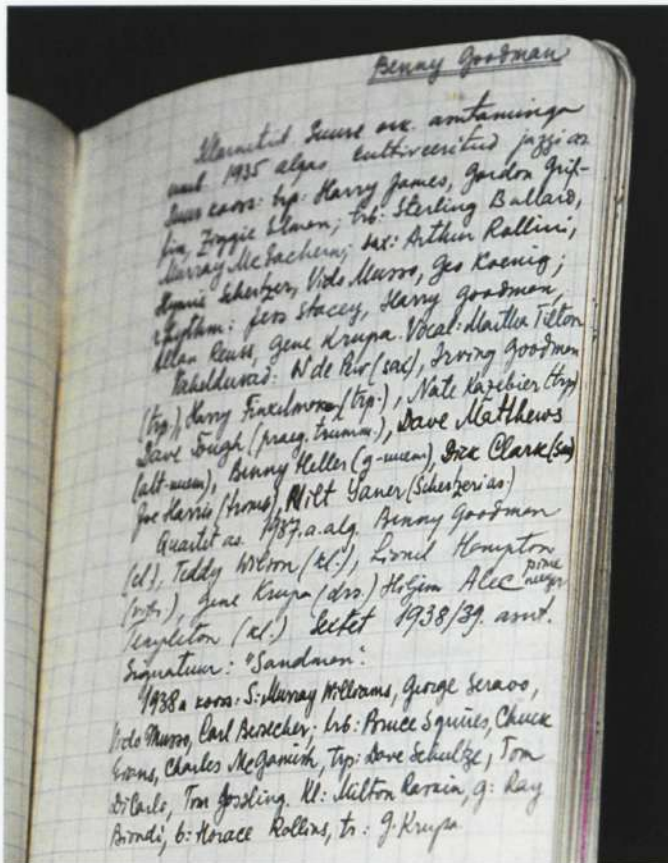 Benny Goodman
Klarnetist Suure ork. asutaminga
1935 algas kultiveeritud jazzi
Suur koos: trp: Harry James, Gordon Grif-
fin, Ziggie Elman; trb: Sterling Ballard,
Murray McEachern; sax: Arthur Rollini,
Hymie Schertzer, Vido Musso, Geo Koenig;
rhythm: Jess Stacey, Harry Goodman,
Allan Reuss, Gene Krupa. Vocal: Martha Tilton
Vahelduvad: (sax), Irving Goodman
(trp), Harry (trp.), Nate Kazebier (trp)
Dave Tough (praeg. trumm.), Dave Matthews
Benny Heller Dick Clark
Joe Harris (tromb), Milt Yaner (Schertzeri as.)
Quartet as. a. alg. Benny Goodman
(cl), Teddy Wilson (kl.), Lionel Hampton
Gene Krupa (drs.) Hiljem Alec pime
Templeton (kl.) Sextet 1938/39. asut.
Signatuur: "Sandman".
1938 a koos: S: Murray Williams, George Seravo,
Vido Musso, Carl trb: Bruce Squires, Chuck
Evans, Charles McCamish, trp: Dave Schultze, Tom
DiCarlo, Tom Gossling. Kl: Milton Raskin, g: Ray
Biondi, b: Horace Rollins, tr.: G. Krupa